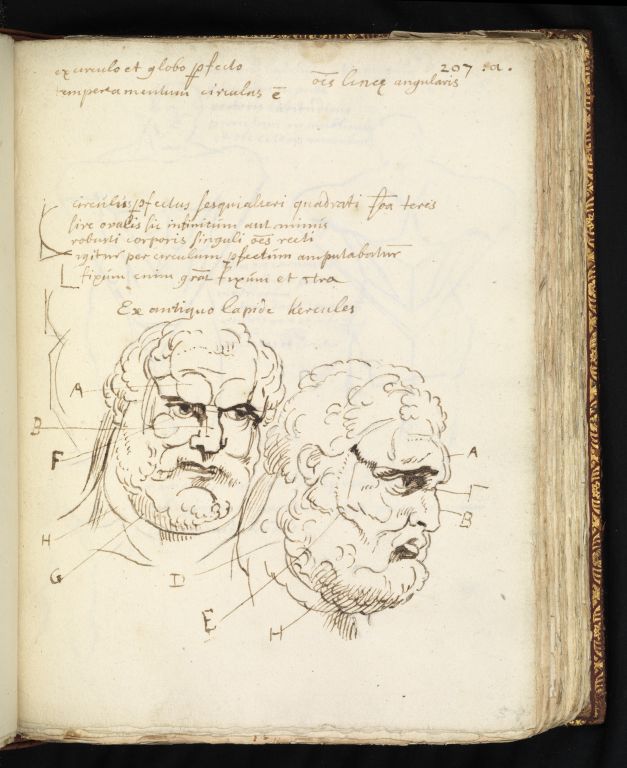 ex circulo et globo pfecto 207 .a.
temperamentum circulus ē oēs lineę angularis
circulis pfectus sesquialteri quadrati teres
sive ovalis sic infinitum aut minus
robusti corporis singuli oēs recti
igitur per circulum pfectum amputabatur
fixum enim fixum et
Ex antiquo lapide Hercules
A
B
F
H
G
D
E
H
A
Γ
B